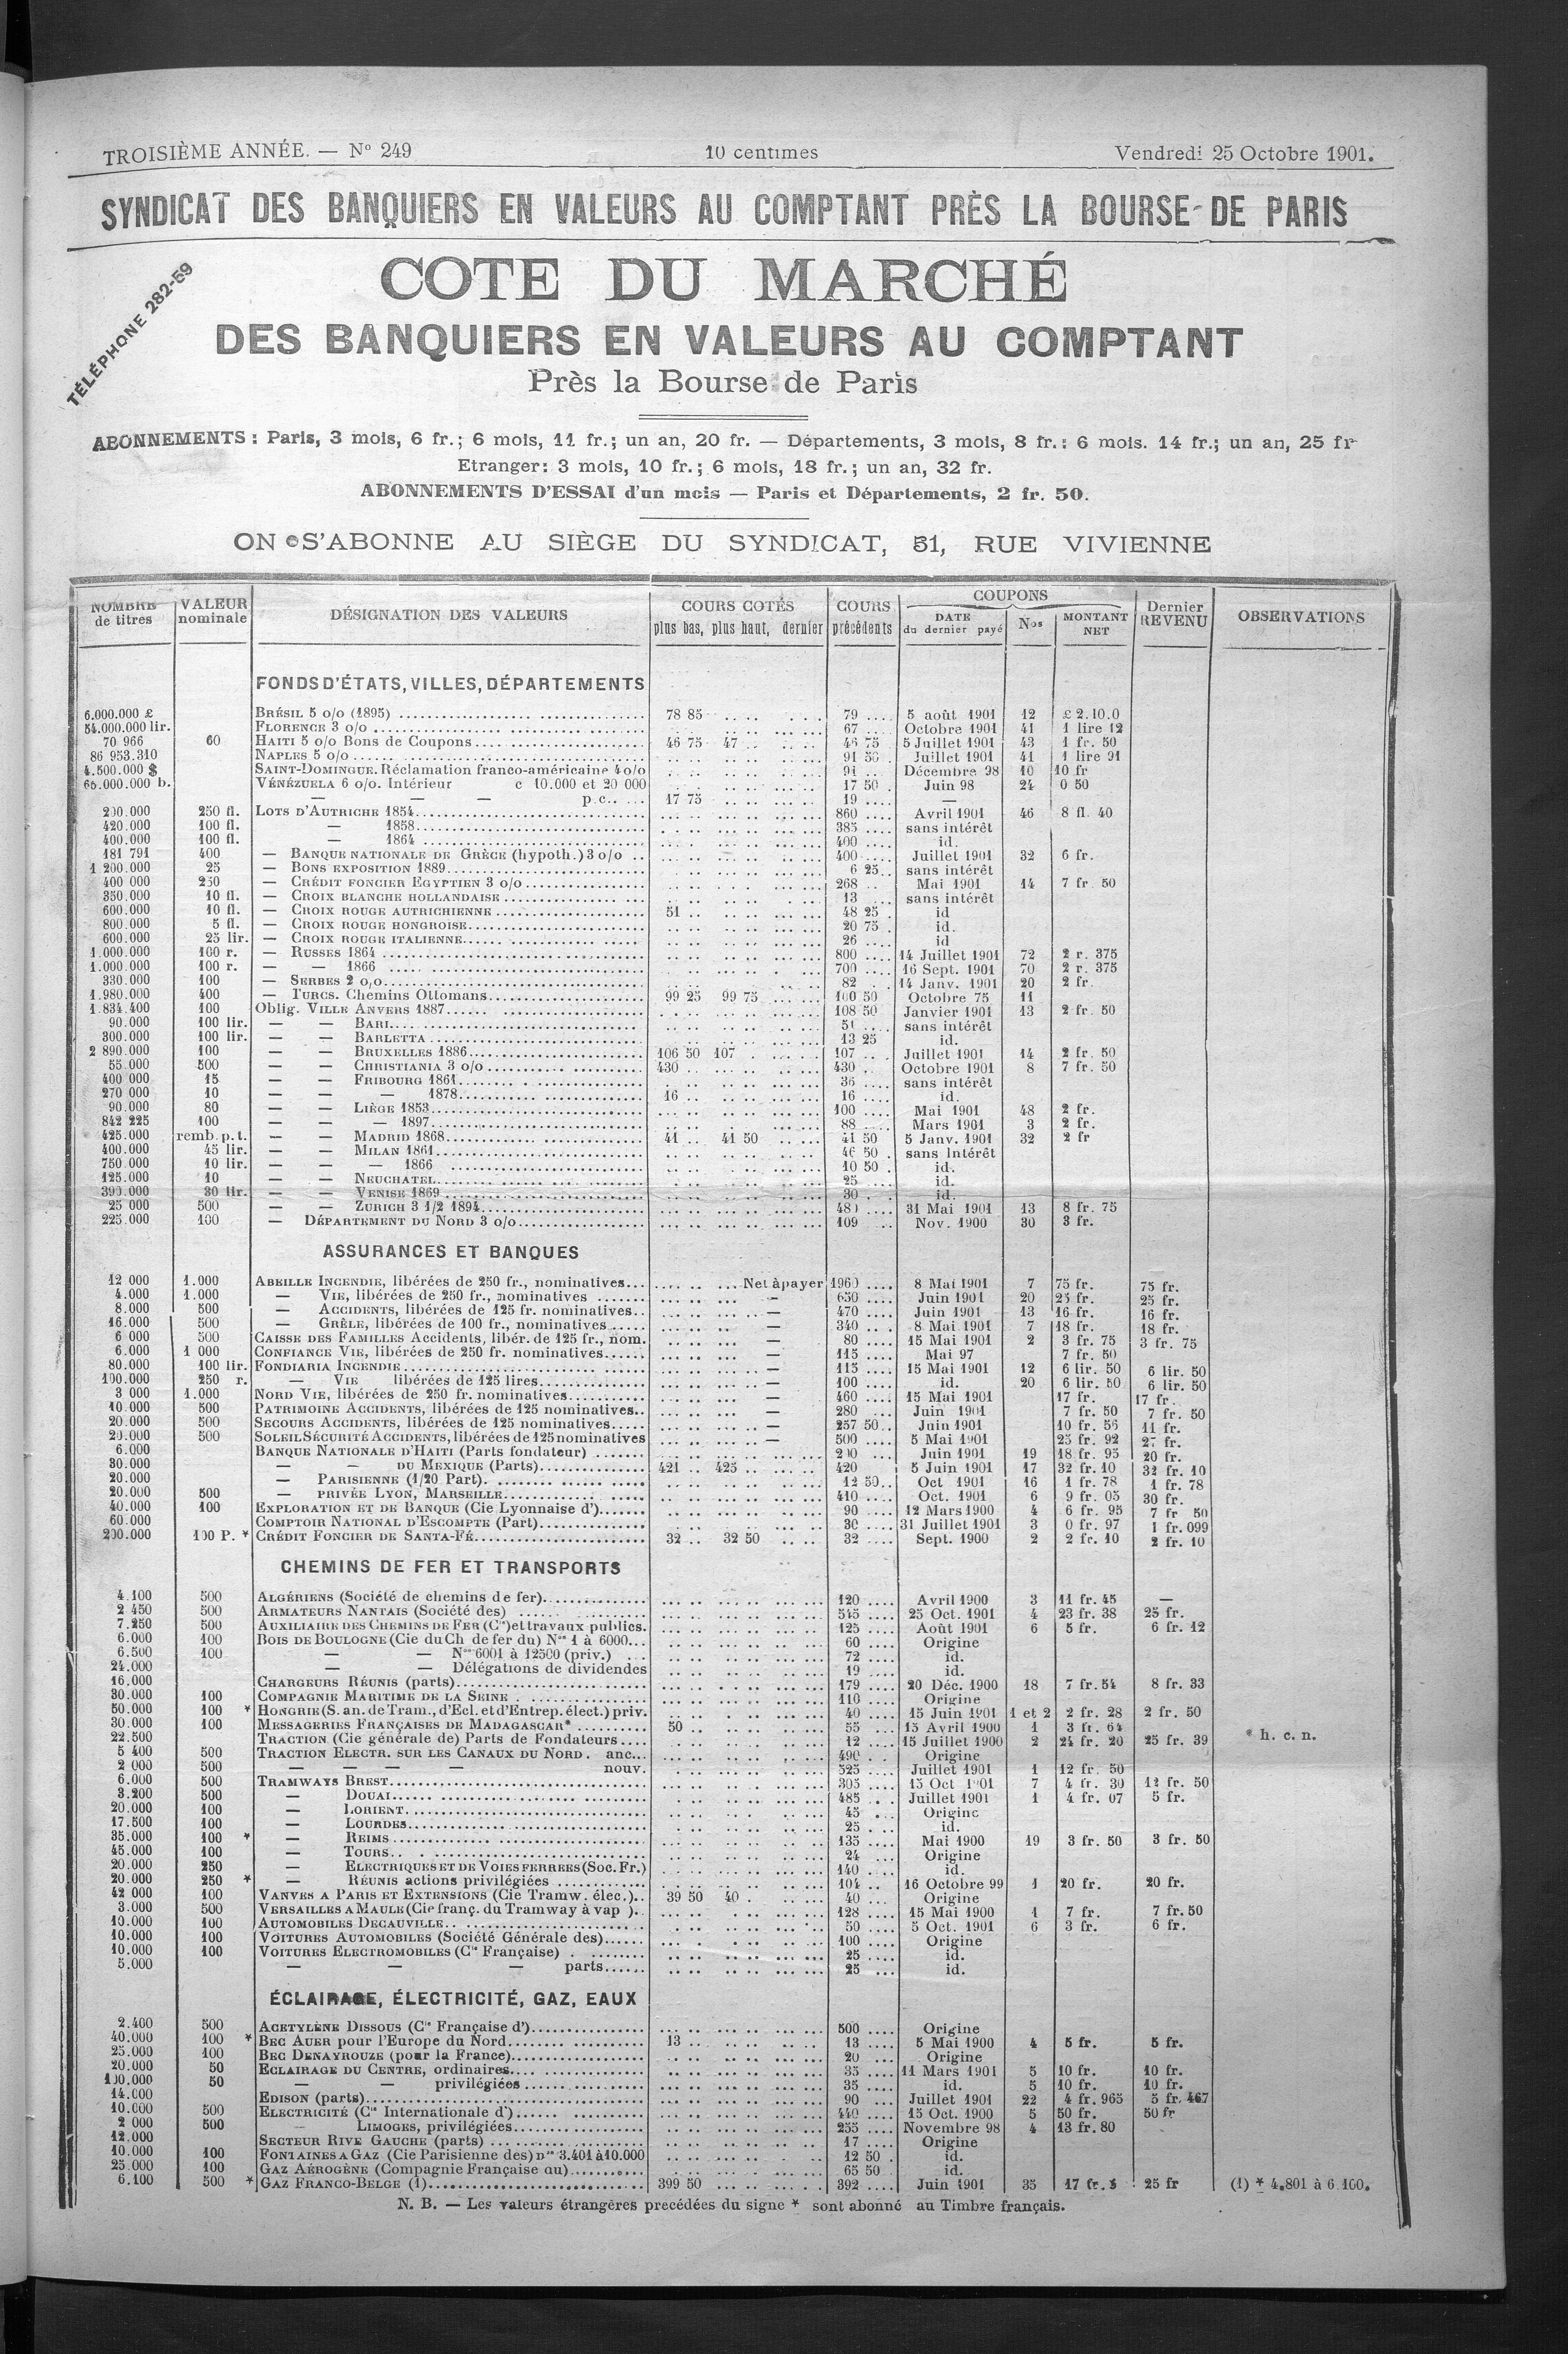 TROISIÈME ANNÉE. — No 249 10 centimes Vendredi 25 Octobre 1901.
SYNDICAT DES BANQUIERS EN VALEURS AU COMPTANT PRÈS LA BOURSE DE PARIS
TÉLÉPHONE 282-59
COTE DU MARCHÉ
DES BANQUIERS EN VALEURS AU COMPTANT
Près la Bourse de Paris
ABONNEMENTS : Paris, 3 mois, 6 fr.; 6 mois, 11 fr.; un an, 20 fr. — Départements, 3 mois, 8 fr.: 6 mois. 14 fr.; un an, 25 fr
Etranger: 3 mois, 10 fr.; 6 mois, 18 fr.; un an, 32 fr.
ABONNEMENTS D'ESSAI d'un mois — Paris et Départements, 2 fr. 50.
ON S'ABONNE AU SIÈGE DU SYNDICAT, 51, RUE VIVIENNE
NOMBRE de titres VALEUR nominale DÉSIGNATION DES VALEURS COURS COTÉS plus bas, plus haut, dernier COURS précédents COUPONS DATE du dernier payé Nos MONTANT NET Dernier REVENU OBSERVATIONS
FONDS D'ÉTATS, VILLES, DÉPARTEMENTS
6.000.000 £ BRÉSIL 5 o/o (1895) 78 85 79 5 août 1901 12 £ 2.10.0
54.000.000 lir. FLORENCE 3 o/o 67 Octobre 1901 41 1 lire 12
70 966 60 HAITI 5 o/o Bons de Coupons 46 75 47 46 75 5 Juillet 1901 43 1 fr. 50
86 953.310 NAPLES 5 o/o 91 50 Juillet 1901 41 1 lire 91
4.500.000 $ SAINT-DOMINGUE. Réclamation franco-américaine 4 o/o 91 Décembre 98 10 10 fr
65.000.000 b. VÉNÉZUELA 6 o/o. Intérieur c 10.000 et 20 000 17 50 Juin 98 24 0 50
— — — p.c. 17 75 19 —
200.000 250 fl. LOTS D'AUTRICHE 1854 860 Avril 1901 46 8 fl. 40
420.000 100 fl. — 1858 385 sans intérêt
400.000 100 fl. — 1864 400 id.
181 791 400 — BANQUE NATIONALE DE GRÈCE (hypoth.) 3 o/o 400 Juillet 1901 32 6 fr.
1 200.000 25 — BONS EXPOSITION 1889 6 25 sans intérêt
400 000 250 — CRÉDIT FONCIER EGYPTIEN 3 o/o 268 Mai 1901 14 7 fr 50
350.000 10 fl. — CROIX BLANCHE HOLLANDAISE 13 sans intérêt
600.000 10 fl. — CROIX ROUGE AUTRICHIENNE 51 48 25 id
800.000 5 fl. — CROIX ROUGE HONGROISE 20 75 id.
600.000 25 lir. — CROIX ROUGE ITALIENNE 26 id
1.000.000 100 r. — RUSSES 1864 800 14 Juillet 1901 72 2 r. 375
1.000.000 100 r. — — 1866 700 16 Sept. 1901 70 2 r. 375
330.000 100 — SERBES 2 o/o 82 14 Janv. 1901 20 2 fr.
1.980.000 400 — TURCS. Chemins Ottomans 99 25 99 75 100 50 Octobre 75 11
1.834.400 100 Oblig. VILLE ANVERS 1887 108 50 Janvier 1901 13 2 fr. 50
90.000 100 lir. — — BARI 51 sans intérêt
300.000 100 lir. — — BARLETTA 13 25 id.
2 890.000 100 — — BRUXELLES 1886 106 50 107 107 Juillet 1901 14 2 fr. 50
55.000 500 — — CHRISTIANIA 3 o/o 430 430 Octobre 1901 8 7 fr. 50
400 000 15 — — FRIBOURG 1861 36 sans intérêt
270 000 10 — — — 1878 16 16 id.
90.000 80 — — LIÈGE 1853 100 Mai 1901 48 2 fr.
842 225 100 — — — 1897 88 Mars 1901 3 2 fr.
425.000 remb. p. t. — — MADRID 1868 41 41 50 41 50 5 Janv. 1901 32 2 fr
400.000 45 lir. — — MILAN 1861 46 50 sans Intérêt
750.000 10 lir. — — — 1866 10 50 id.
125.000 10 — — NEUCHATEL 25 id.
390.000 30 lir. — — VENISE 1869 30 id.
25 000 500 — — ZURICH 3 1/2 1894 480 31 Mai 1901 13 8 fr. 75
225.000 100 — DÉPARTEMENT DU NORD 3 o/o 109 Nov. 1900 30 3 fr.
ASSURANCES ET BANQUES
12 000 1.000 ABEILLE INCENDIE, libérées de 250 fr., nominatives Net à payer 1960 8 Mai 1901 7 75 fr. 75 fr.
4.000 1.000 — VIE, libérées de 250 fr., nominatives — 650 Juin 1901 20 25 fr. 25 fr.
8.000 500 — ACCIDENTS, libérées de 125 fr. nominatives — 470 Juin 1901 13 16 fr. 16 fr.
16.000 500 — GRÊLE, libérées de 100 fr., nominatives — 340 8 Mai 1901 7 18 fr. 18 fr.
6 000 500 CAISSE DES FAMILLES Accidents, libér. de 125 fr., nom. — 80 15 Mai 1901 2 3 fr. 75 3 fr. 75
6.000 1 000 CONFIANCE VIE, libérées de 250 fr. nominatives — 115 Mai 97 7 fr. 50
80.000 100 lir. FONDIARIA INCENDIE — 115 15 Mai 1901 12 6 lir. 50 6 lir. 50
100.000 250 r. — VIE libérées de 125 lires — 100 id. 20 6 lir. 50 6 lir. 50
3 000 1.000 NORD VIE, libérées de 250 fr. nominatives — 460 15 Mai 1901 17 fr. 17 fr.
10.000 500 PATRIMOINE ACCIDENTS, libérées de 125 nominatives — 280 Juin 1901 7 fr. 50 7 fr. 50
20.000 500 SECOURS ACCIDENTS, libérées de 125 nominatives — 257 50 Juin 1901 10 fr. 56 11 fr.
20.000 500 SOLEIL SÉCURITÉ ACCIDENTS, libérées de 125 nominatives — 500 5 Mai 1901 25 fr. 92 27 fr.
6.000 BANQUE NATIONALE D'HAITI (Parts fondateur) 200 Juin 1901 19 18 fr. 95 20 fr.
30.000 — — DU MEXIQUE (Parts) 421 425 420 5 Juin 1901 17 32 fr. 10 32 fr. 10
20.000 — PARISIENNE (1/20 Part) 12 50 Oct 1901 16 1 fr. 78 1 fr. 78
20.000 500 — PRIVÉE LYON, MARSEILLE 410 Oct. 1901 6 9 fr. 05 30 fr.
40.000 100 EXPLORATION ET DE BANQUE (Cie Lyonnaise d') 90 12 Mars 1900 4 6 fr. 95 7 fr 50
60.000 COMPTOIR NATIONAL D'ESCOMPTE (Part) 30 31 Juillet 1901 3 0 fr. 97 1 fr. 099
200.000 100 P. * CRÉDIT FONCIER DE SANTA-FÉ 32 32 50 32 Sept. 1900 2 2 fr. 10 2 fr. 10
CHEMINS DE FER ET TRANSPORTS
4.100 500 ALGÉRIENS (Société de chemins de fer) 120 Avril 1900 3 11 fr. 45 —
2 450 500 ARMATEURS NANTAIS (Société des) 545 25 Oct. 1901 4 23 fr. 38 25 fr.
7.250 500 AUXILIAIRE DES CHEMINS DE FER (Cie) et travaux publics. 125 Août 1901 6 5 fr. 6 fr. 12
6.000 100 BOIS DE BOULOGNE (Cie du Ch de fer du) Nos 1 à 6000 60 Origine
6.500 100 — — Nos 6001 à 12500 (priv.) 72 id.
24.000 — — Délégations de dividendes 19 id.
16,000 CHARGEURS RÉUNIS (parts) 179 20 Déc. 1900 18 7 fr. 54 8 fr. 33
30.000 100 COMPAGNIE MARITIME DE LA SEINE 110 Origine
50.000 100 * HONGRIE (S. an. de Tram., d'Ecl. et d'Entrep. élect.) priv. 40 15 Juin 1901 1 et 2 2 fr. 28 2 fr. 50
30.000 100 MESSAGERIES FRANÇAISES DE MADAGASCAR* 50 55 15 Avril 1900 1 3 fr. 64 * h. c. n.
22.500 TRACTION (Cie générale de) Parts de Fondateurs 12 15 Juillet 1900 2 24 fr. 20 25 fr. 39
5 400 500 TRACTION ELECTR. SUR LES CANAUX DU NORD. anc. 490 Origine
2 000 500 — — — — nouv. 525 Juillet 1901 1 12 fr. 50
6.000 500 TRAMWAYS BREST 305 15 Oct 1901 7 4 fr. 30 12 fr. 50
3.200 500 — DOUAI 485 Juillet 1901 1 4 fr. 07 5 fr.
20.000 100 — LORIENT 45 Origine
17.500 100 — LOURDES 25 id.
35.000 100 * — REIMS 135 Mai 1900 19 3 fr. 50 3 fr. 50
45.000 100 — TOURS 24 Origine
20.000 250 — ELECTRIQUES ET DE VOIES FERREES (Soc. Fr.) 140 id.
20.000 250 * — RÉUNIS actions privilégiées 104 16 Octobre 99 1 20 fr. 20 fr.
42 000 100 VANVES A PARIS ET EXTENSIONS (Cie Tramw. élec.) 39 50 40 40 Origine
3.000 500 VERSAILLES A MAULE (Cie franç. du Tramway à vap ) 128 15 Mai 1900 1 7 fr. 7 fr. 50
10.000 100 AUTOMOBILES DECAUVILLE 50 5 Oct. 1901 6 3 fr. 6 fr.
10.000 100 VOITURES AUTOMOBILES (Société Générale des) 100 Origine
10.000 100 VOITURES ELECTROMOBILES (Cie Française) 25 id.
5.000 — — — parts 25 id.
ÉCLAIRAGE, ÉLECTRICITÉ, GAZ, EAUX
2.400 500 ACETYLÈNE DISSOUS (Cie Française d') 500 Origine
40.000 100 * BEC AUER pour l'Europe du Nord 13 13 5 Mai 1900 4 5 fr. 5 fr.
25.000 100 BEC DENAYROUZE (pour la France) 20 Origine
20.000 50 ECLAIRAGE DU CENTRE, ordinaires 35 11 Mars 1901 5 10 fr. 10 fr.
100.000 50 — — privilégiées 35 id. 5 10 fr. 10 fr.
14.000 EDISON (parts) 90 Juillet 1901 22 4 fr. 965 5 fr. 467
10.000 500 ELECTRICITÉ (Cie Internationale d') 440 15 Oct. 1900 5 50 fr. 50 fr
2 000 500 — LIMOGES, privilégiées 255 Novembre 98 4 13 fr. 80
12.000 SECTEUR RIVE GAUCHE (parts) 17 Origine
10.000 100 FONTAINES A GAZ (Cie Parisienne des) nos 3.401 à 10.000 12 50 id.
25.000 100 GAZ AÉROGÈNE (Compagnie Française du) 65 50 id.
6.100 500 * GAZ FRANCO-BELGE (1) 399 50 392 Juin 1901 35 17 fr. 25 fr (1) * 4.801 à 6.100.
N. B. — Les valeurs étrangères precédées du signe * sont abonné au Timbre français.